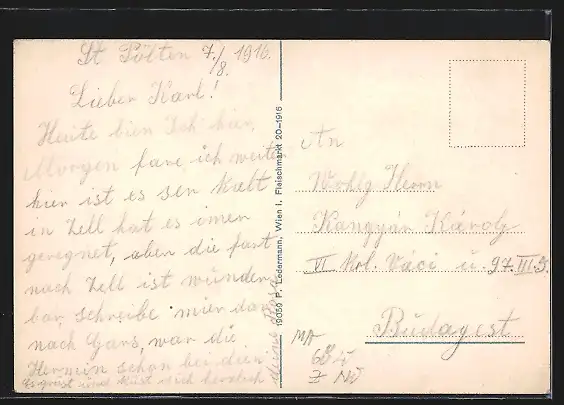 St Pölten 7./8. 1916.
Lieber Karl!
Heute bien Ich hier,
Morgen fare ich weiter
hier ist es ser kalt
in Zell hat es imer
geregnet, aber die fart
nach Zell ist wunder
bar, schreibe mier dan
nach Gars, war die
Hermin schon bei dier
Es grüst und küst dich herzlich
deine Rosa
19050 P. Ledermann, Wien I, Fleischmarkt 20–1915
An
Wohlg Herrn
Kangyár Károly
VI Krl. Váci ú 97. III. 9.
Budapest